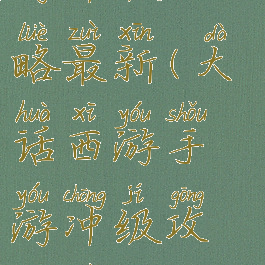 lüè zuì xīn dà
略最新(大
huà xī yóu shǒu
话西游手
yóu chōng jí gōng
游冲级攻